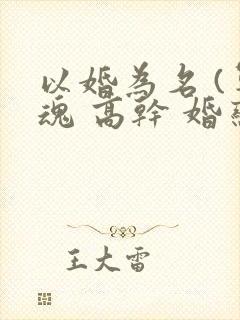 以婚為名(
魂 高幹 婚
王大雷